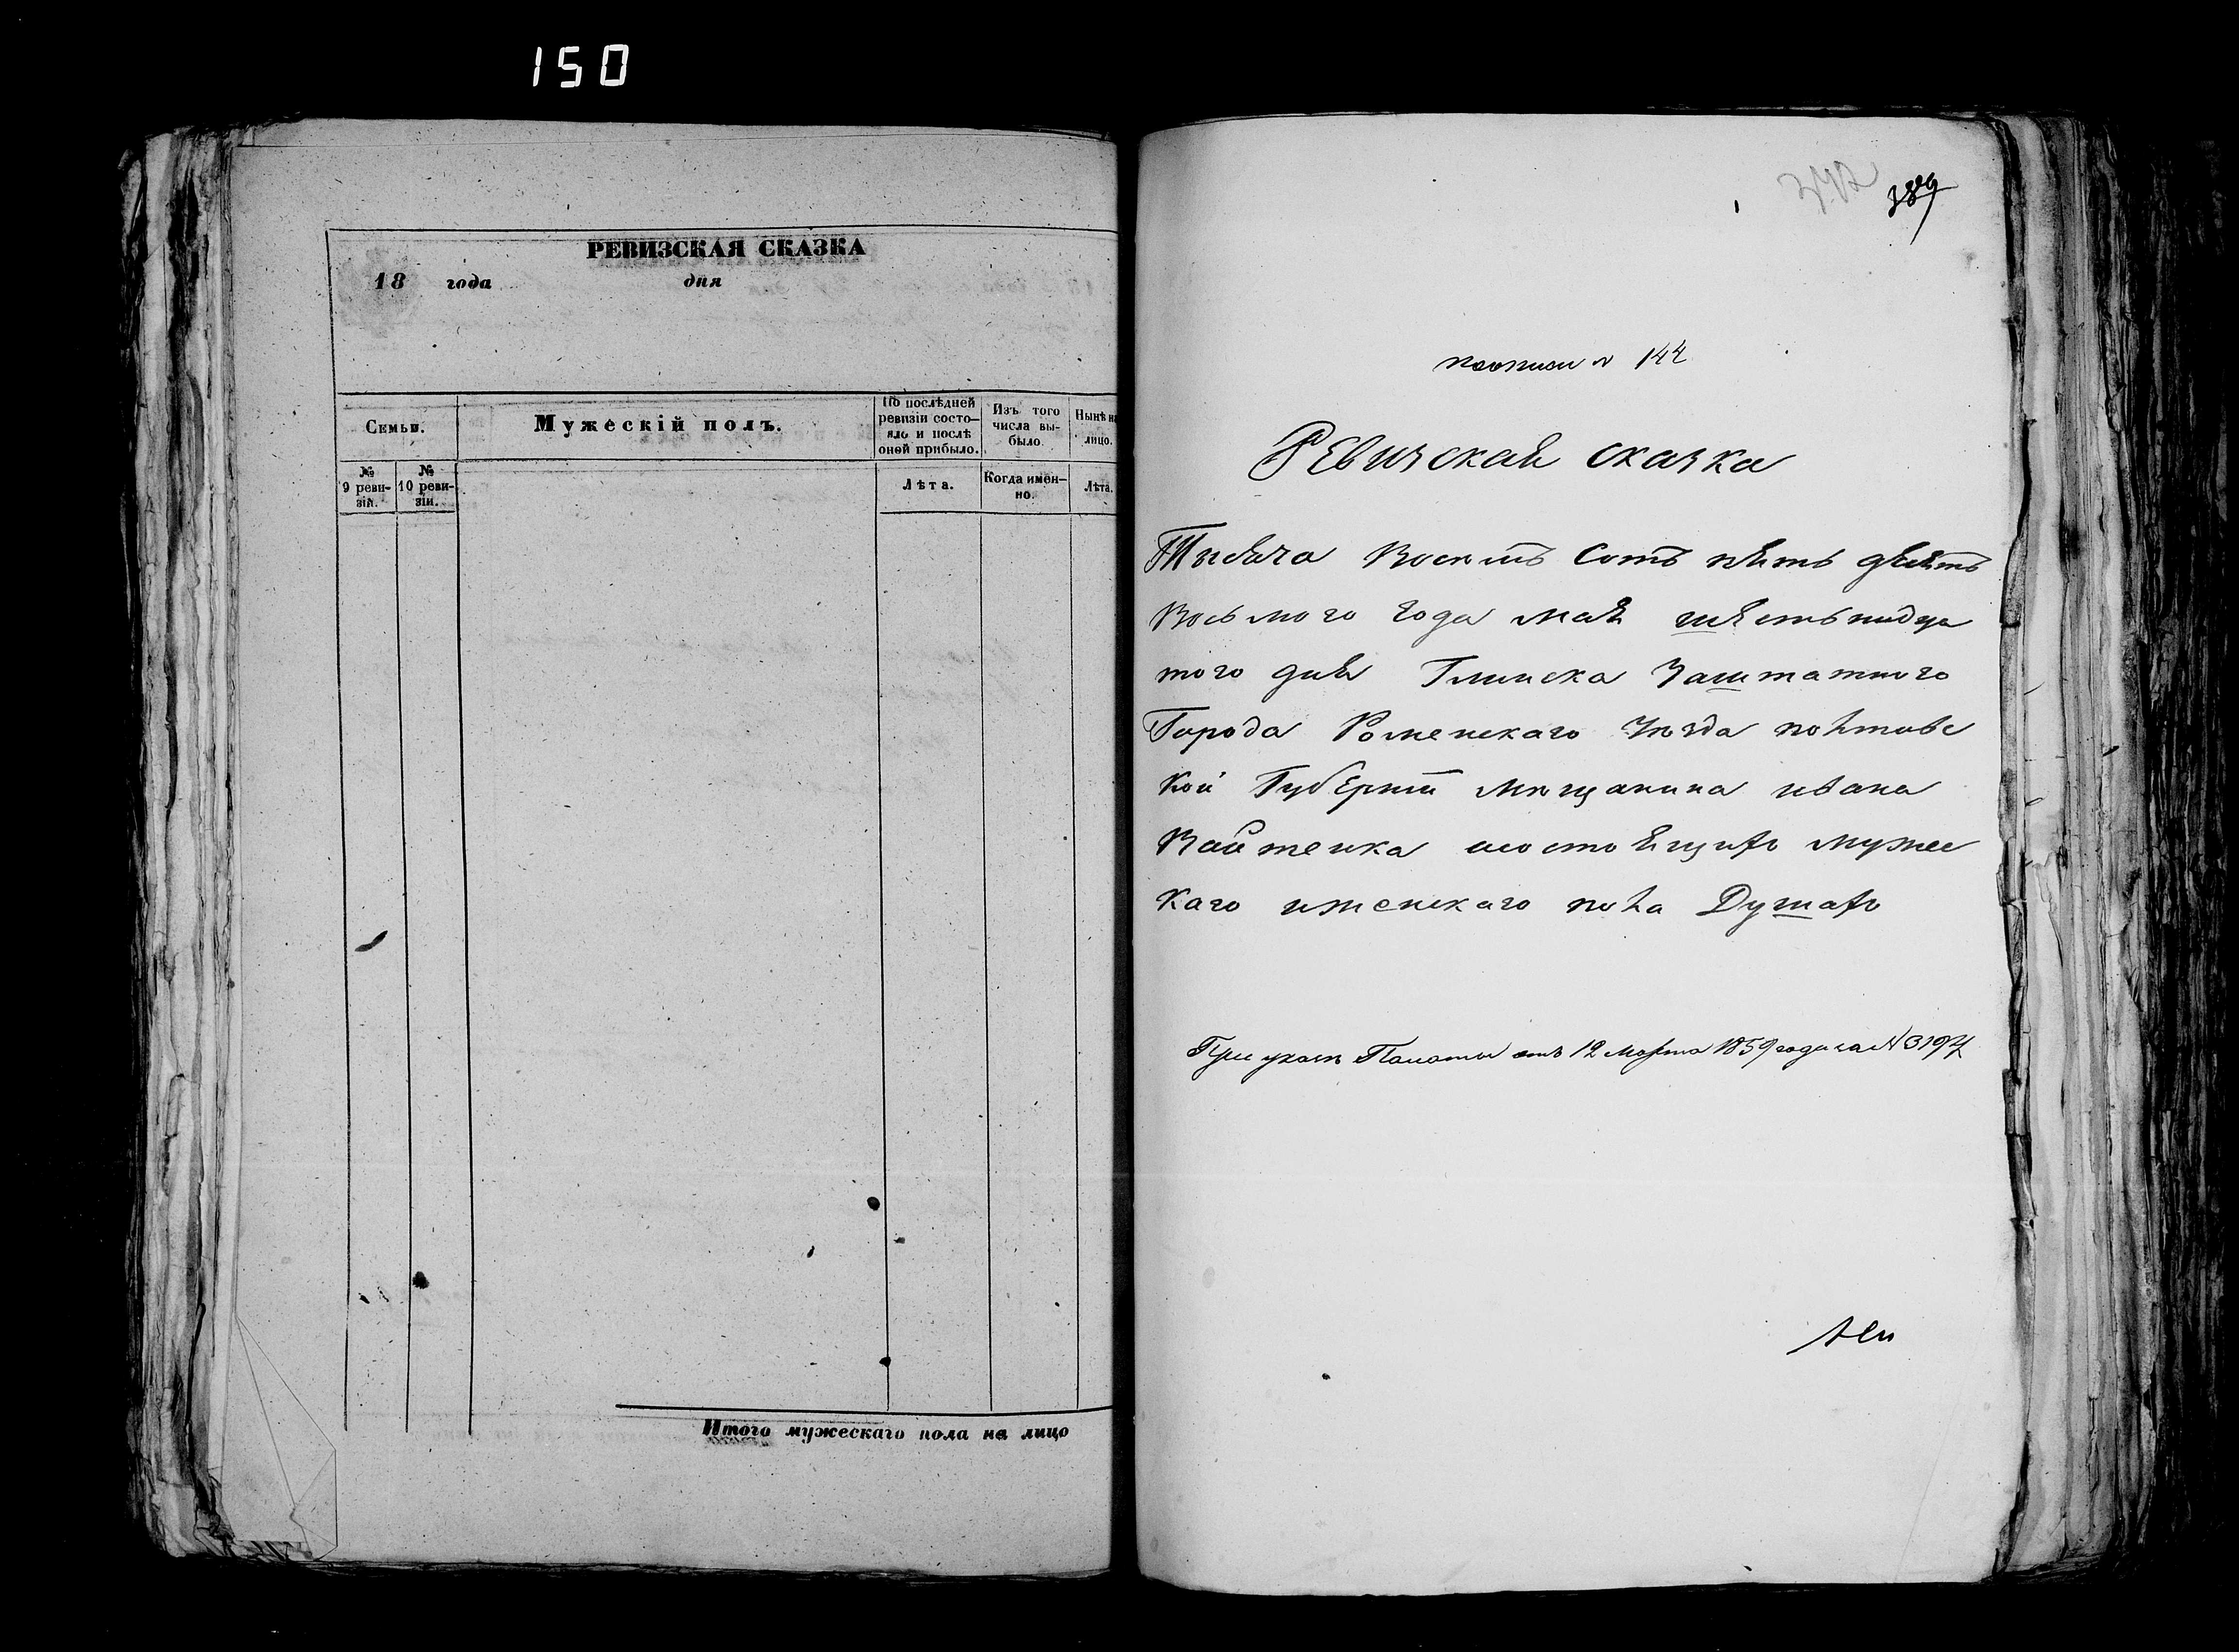 150
РЕВИЗСКАЯ СКАЗКА
18 года дня
Семьи.
Мужескій полъ.
По послѣдней ревизіи состо-
яло и послѣ
оной прибыло.
Изъ того
числа вы-
было.
Нынѣ на
лицо.
№
9 реви-
зіи.
№
10 реви-
зіи.
Лѣта.
Когда имен-
но.
Лѣта.
Итого мужескаго пола на лицо
372 389
144
Ревизская сказка
Тысяча Восемъ Сотъ пять десятъ
Восьмого года мая шестьнадца
того дня Глинска Заштатного
Города Роменскаго Уѣзда полтавс
кой Губерніи Мѣщанина ивана
Войтенка осостоящихъ мужес
каго иженскаго пола Душахъ
При указѣ Палаты отъ 12 Марта 1859 года за №